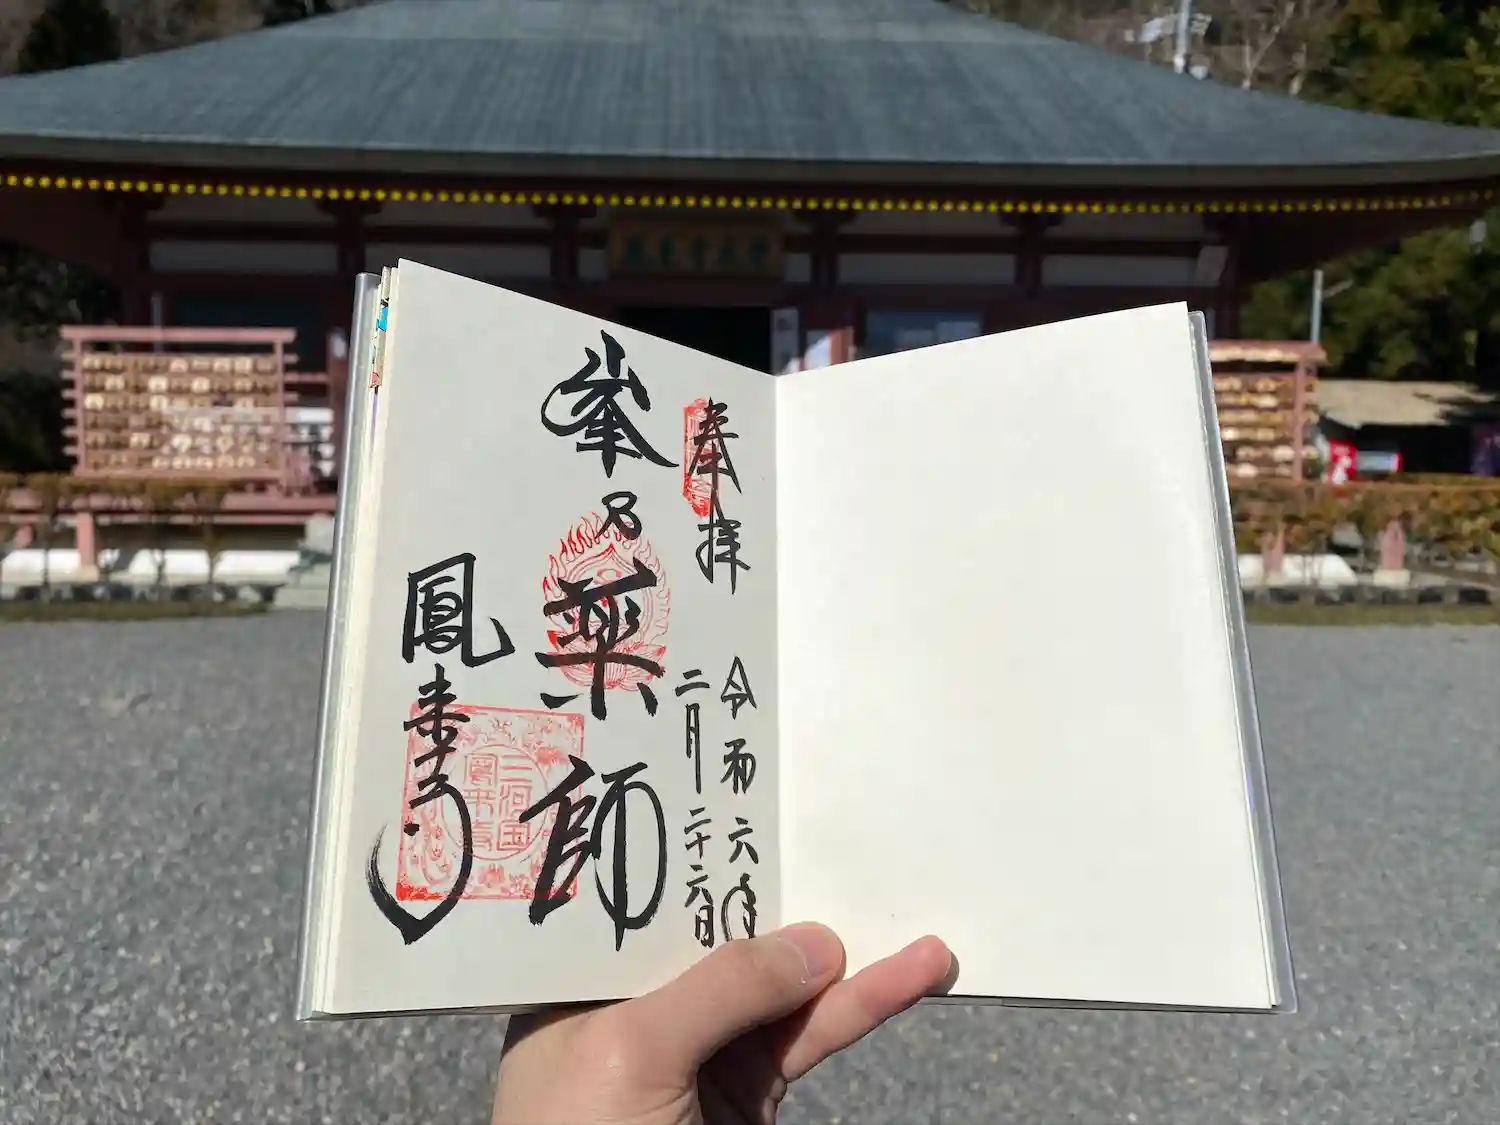 奉拝
令和六年
二月二十六日
峯乃薬師
鳳来寺
三河国
鳳来寺